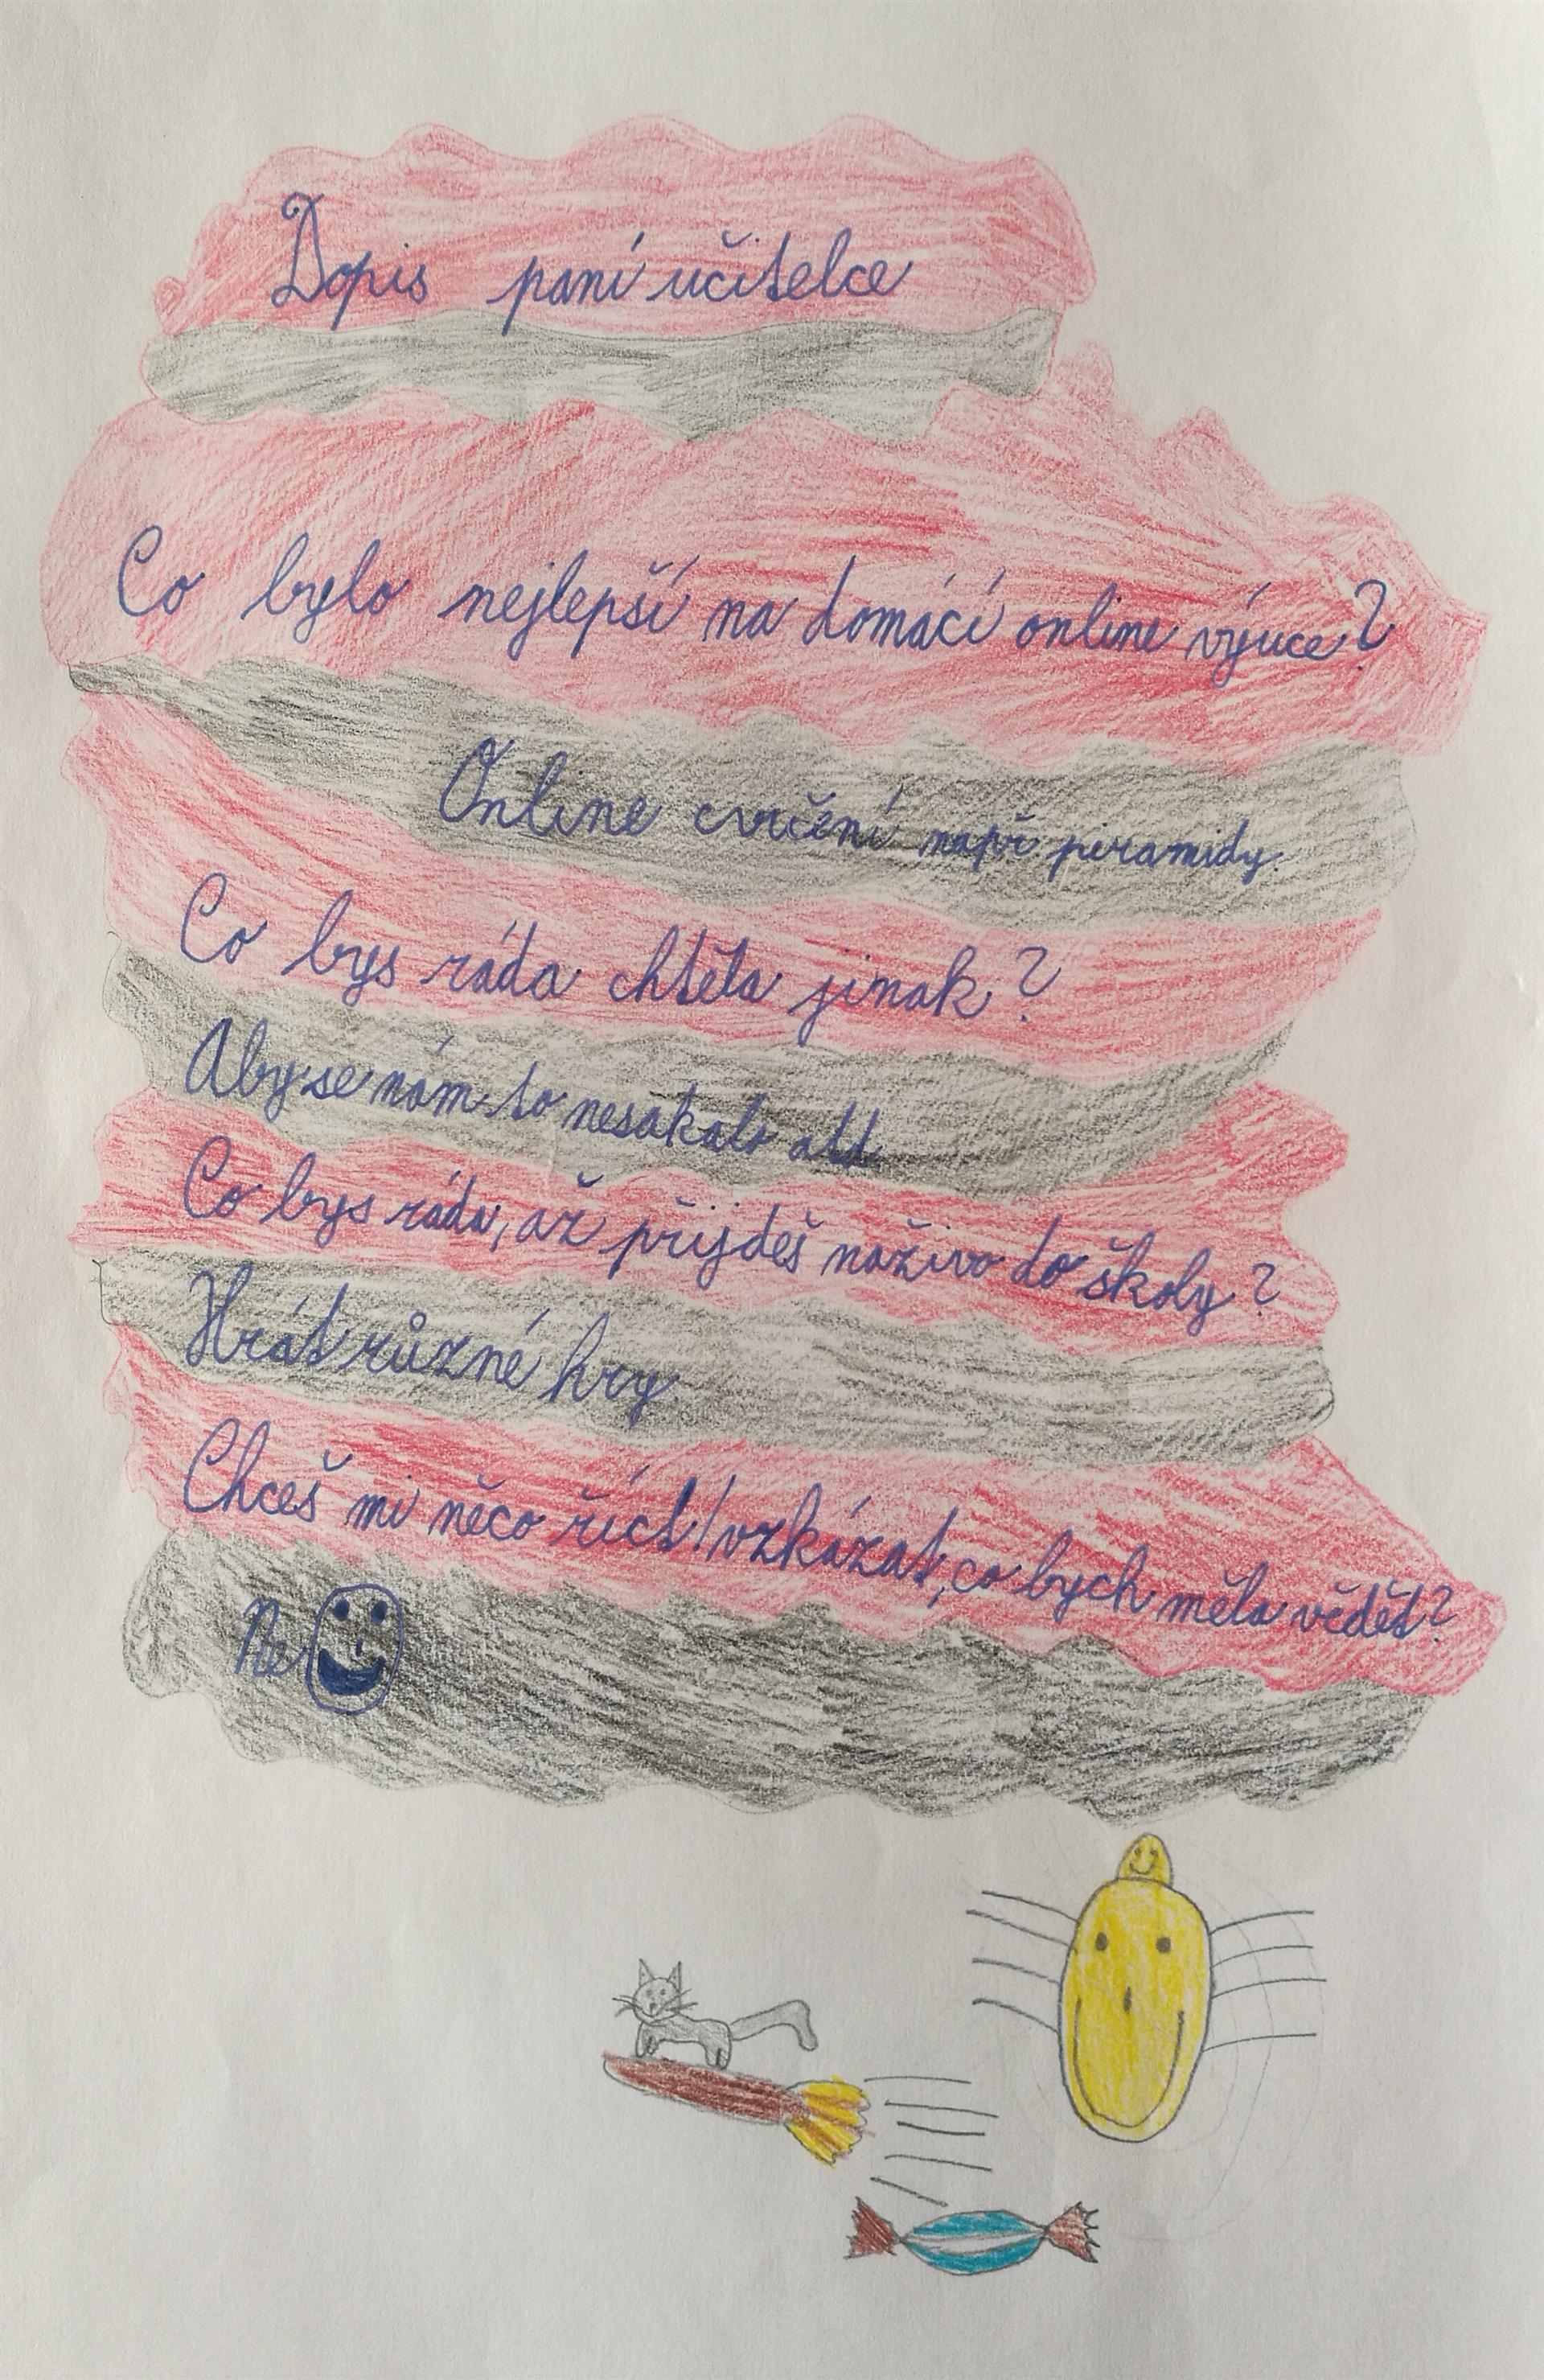 Dopis paní učitelce
Co bylo nejlepší na domácí online výuce?
Online cvičení např piramidy.
Co bys ráda chtěla jinak?
Aby se nám to nesakalo atd.
Co bys ráda, až přijdeš naživo do školy?
Hrát různé hry.
Chceš mi něco říct/vzkázat, co bych měla vědět?
Ne